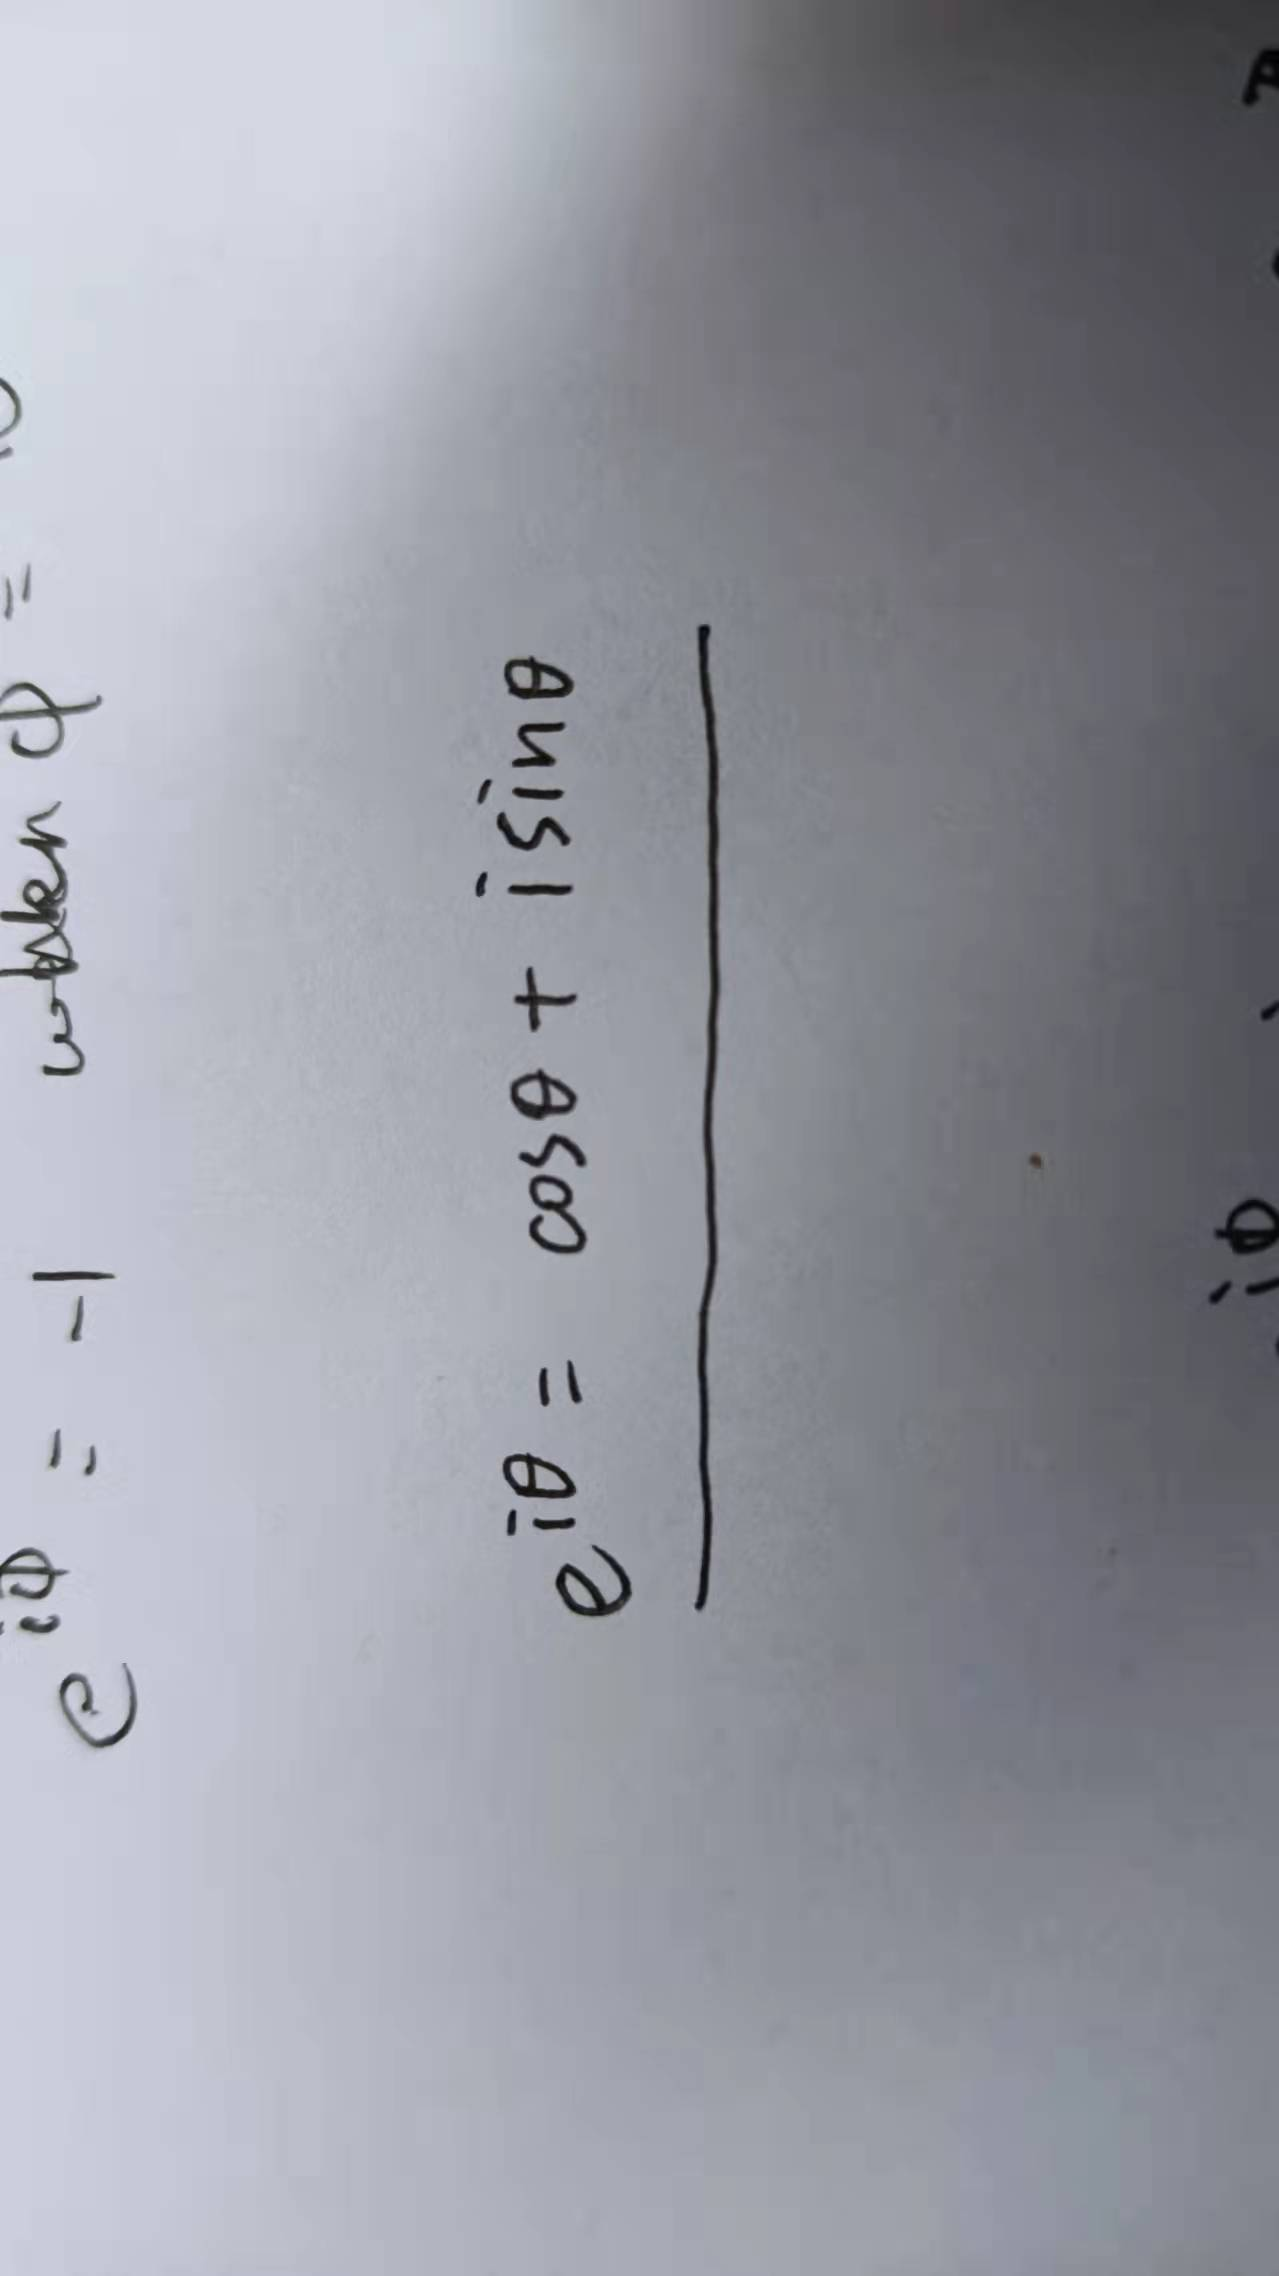 e^{iφ} = -1 when φ =
e^{iθ} = cosθ + isinθ
iφ